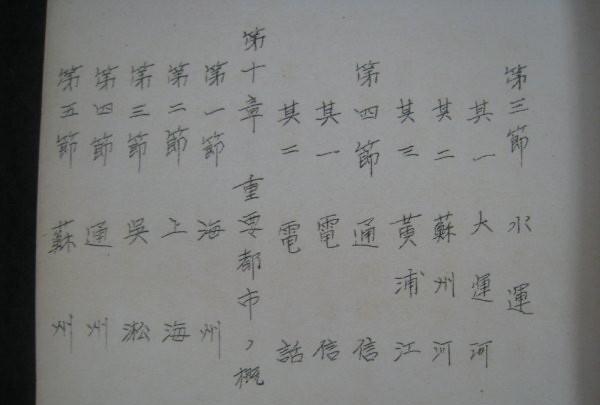 第三節 水運
其一 大運河
其二 蘇州河
其三 黄浦江
第四節 通信
其一 電信
其二 電話
第十章 重要都市ノ概
第一節 海州
第二節 上海
第三節 吳淞
第四節 通州
第五節 蘇州